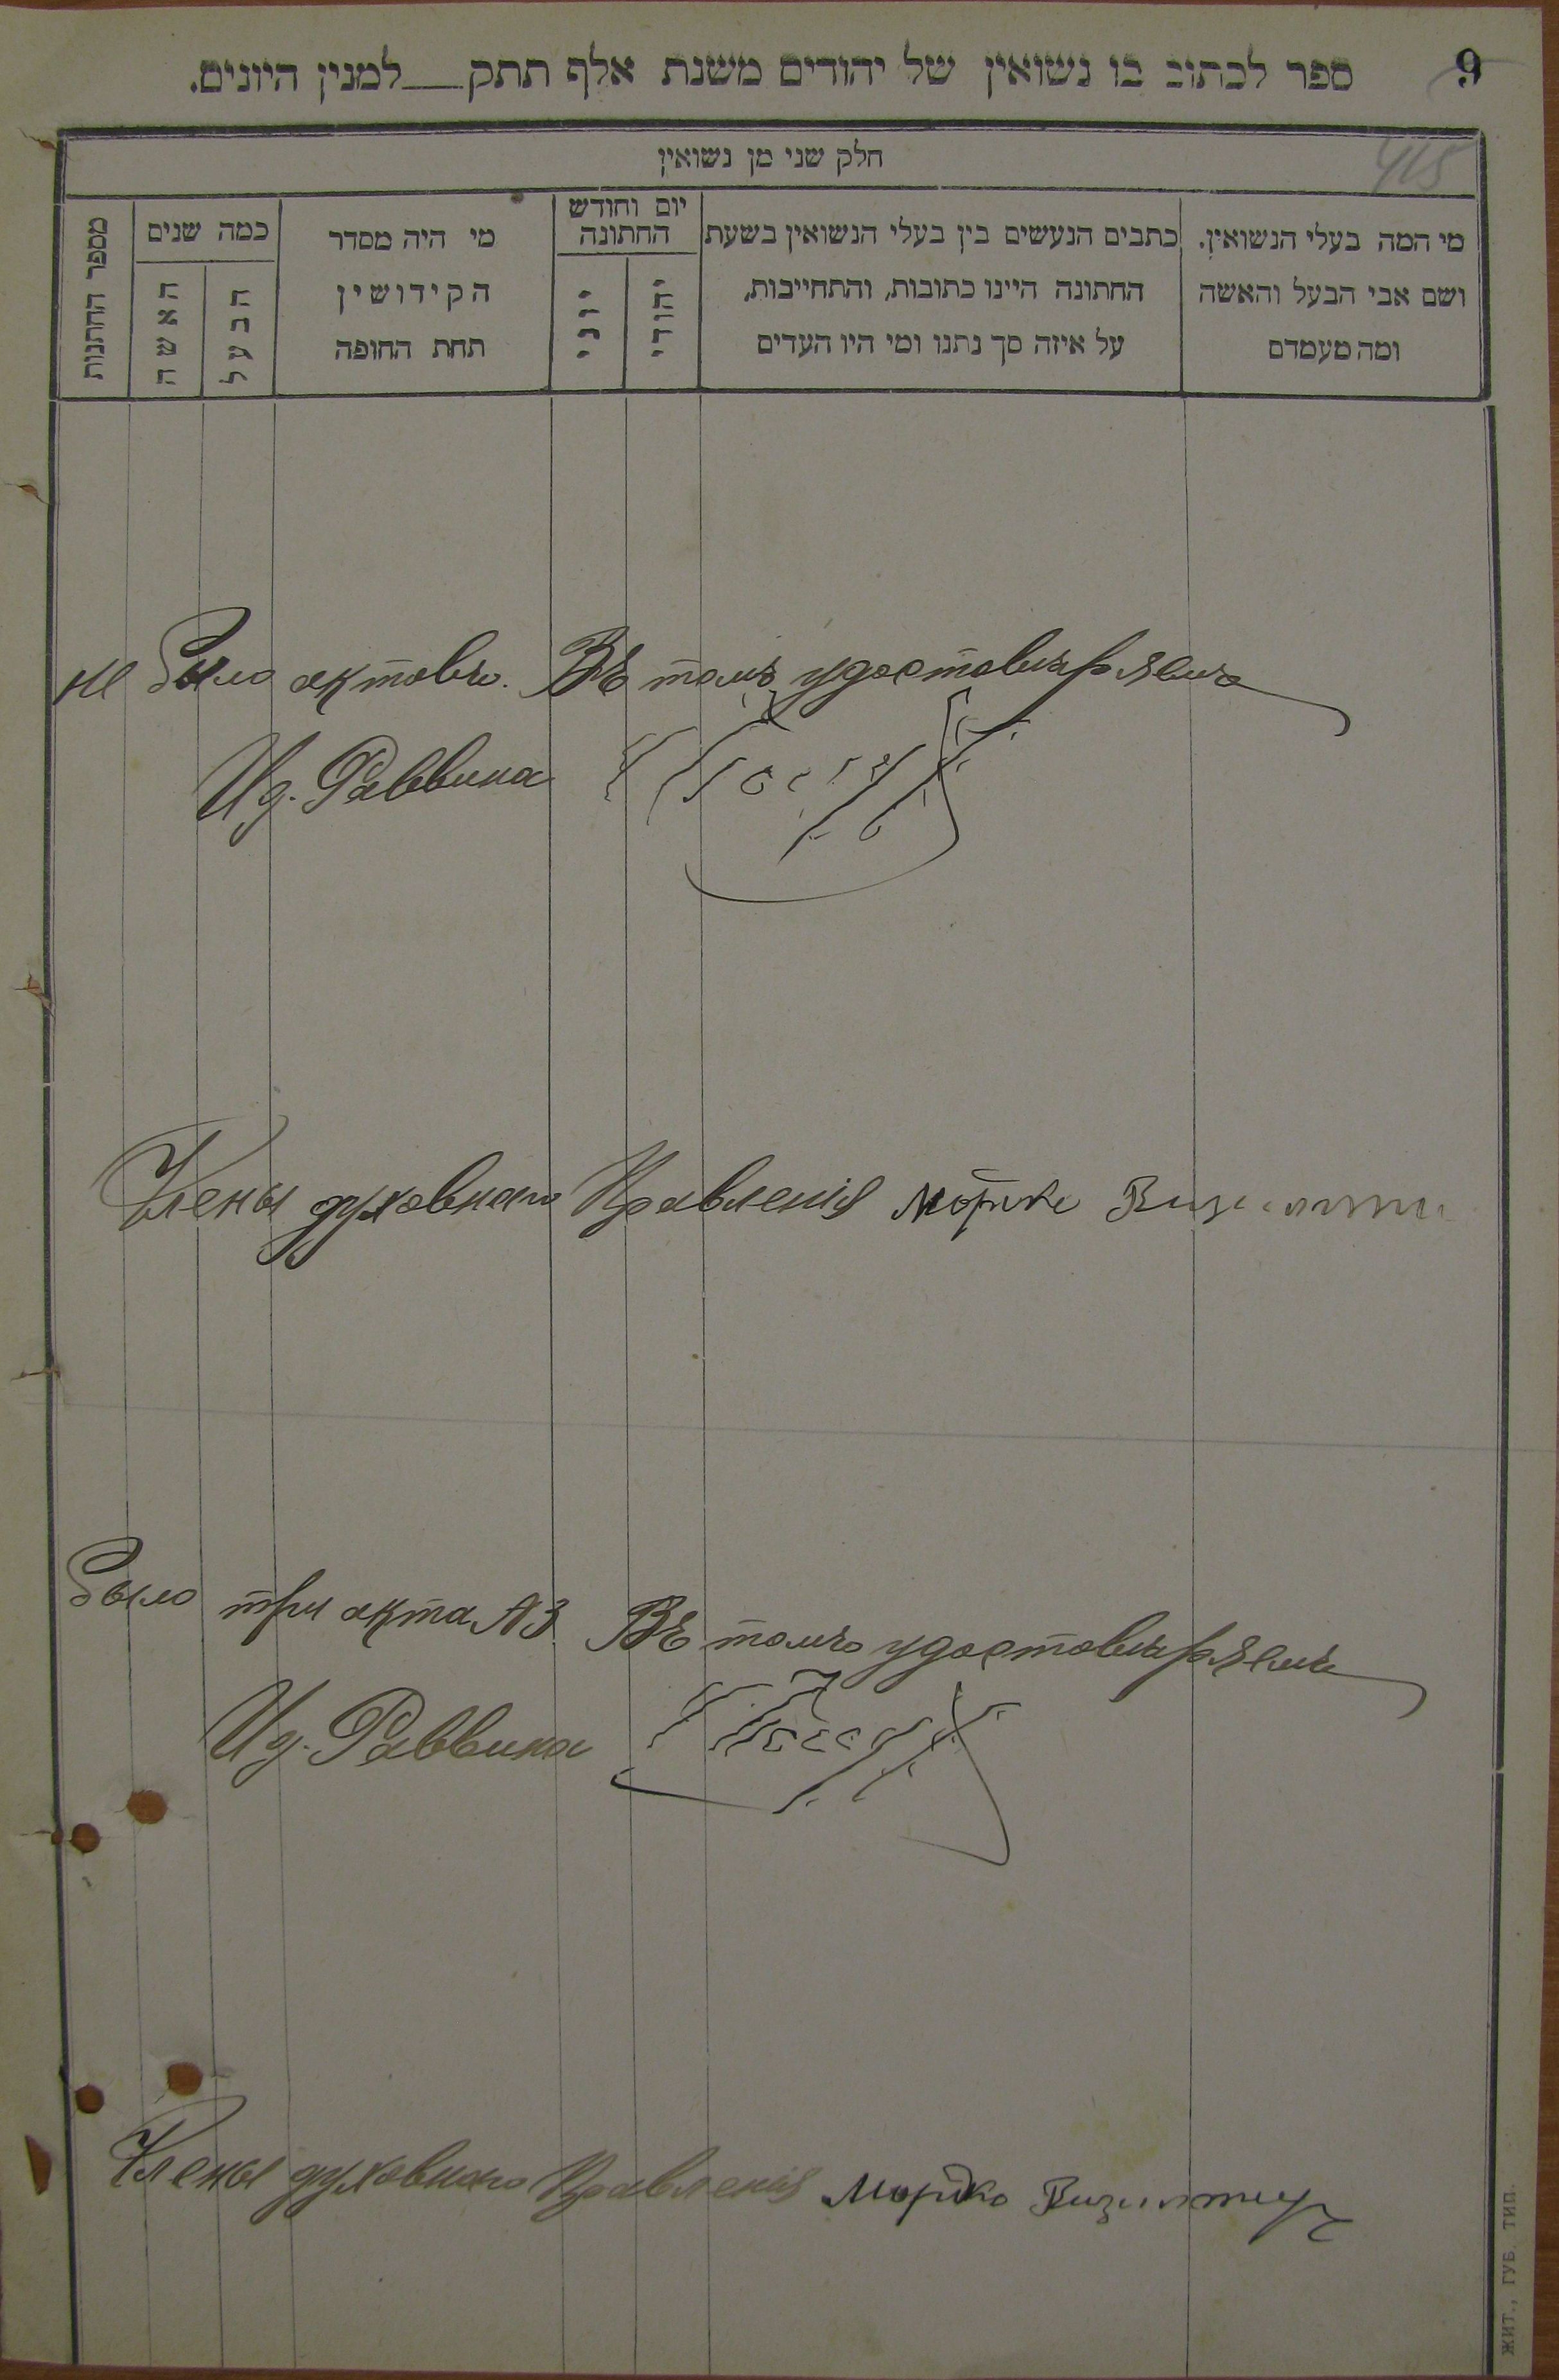 9
ספר לכתוב בו נשואין של יהודים משנת אלף תתק___למנין היונים.
415
חלק שני מן נשואין
מי המה בעלי הנשואין.
ושם אבי הבעל והאשה
ומה מעמדם
כתבים הנעשים בין בעלי הנשואין בשעת
החתונה היינו כתובות, והתחייבות,
על איזה סך נתנו ומי היו העדים
יום וחודש
החתונה
יהודי
יוני
מי היה מסדר
הקידושין
תחת החופה
כמה שנים
הבעל
האשה
מספר החתנות
не было актовъ. Въ томъ удостовѣряемъ
Ид. Раввина
Члены духовнаго Правленія Мордко
Было три акта А3. Въ томъ удостовѣряемъ
Ид. Раввина
Члены духовнаго Правленія Мордко
ЖИТ., ГУБ. ТИП.